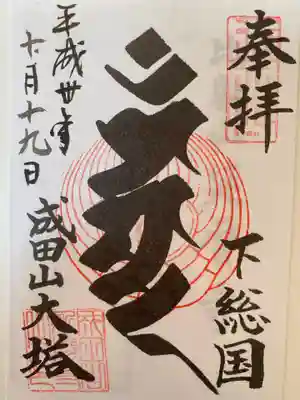 奉拝
下総国
成田山大塔
平成卅年
十月十九日